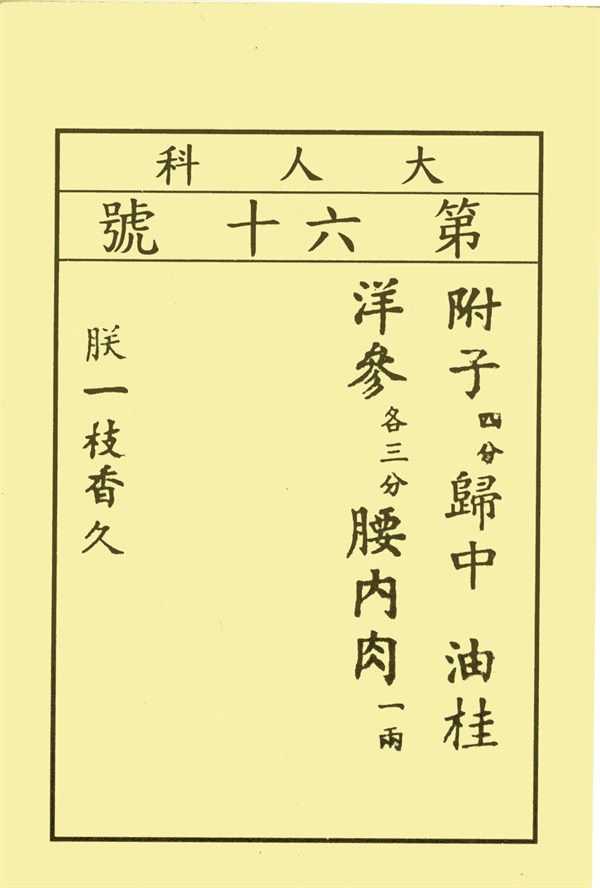 大人科
第六十號
附子四分歸中 油桂
洋參各三分腰內肉一兩
朕一枝香久